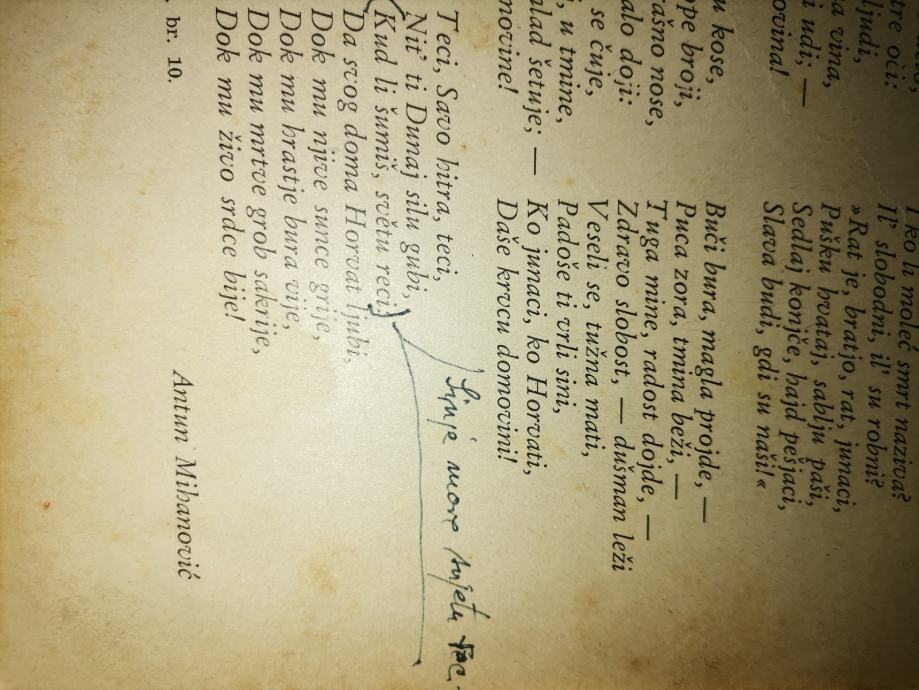 tre oči:
ljudi,
vina,
i udi; —
ovina!
u kose,
broji,
nose,
doji:
se čuje,
u tmine,
šetuje; —
movine!
li moleć smrt nazivaš
Il', slobodni, il' su robni?
»Rat je, bratjo, rat, junaci,
Pušku hvataj, sablju paši,
Sedlaj konjče, hajd pešjaci,
Slava budi, gdi su naši!«
Buči bura, magla projde, —
Puca zora, tmina beži, —
Tuga mine, radost dojde, —
Zdravo slobost, — dušman leži
Veseli se, tužna mati,
Padoše ti vrli sini,
Ko junaci, ko Horvati,
Daše krvcu domovini!
Teci, Savo hitra, teci,
Nit' ti Dunaj silu gubi,
Kud li šumiš, světu reci,
Da svog doma Horvat ljubi,
Dok mu njive sunce grije,
Dok mu hrastje bura vije,
Dok mu mrtve grob sakrije,
Dok mu živo srdce bije!
Sinje more svijetu
Antun Mihanović
br. 10.